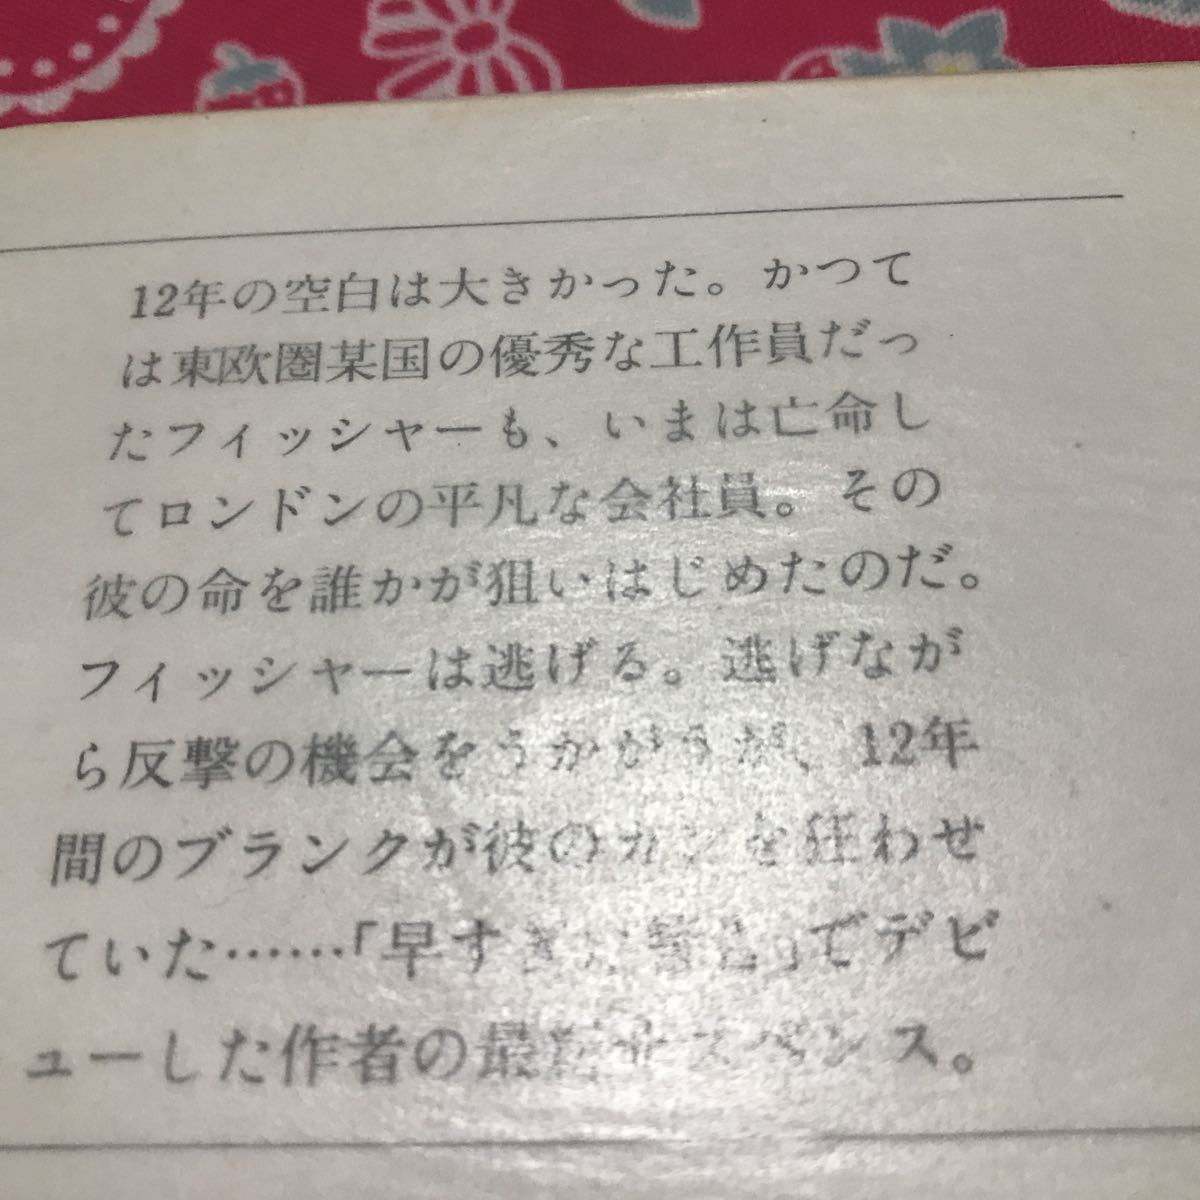 12年の空白は大きかった。かつて
は東欧圏某国の優秀な工作員だっ
たフィッシャーも、いまは亡命し
てロンドンの平凡な会社員。その
彼の命を誰かが狙いはじめたのだ。
フィッシャーは逃げる。逃げなが
ら反撃の機会をうかがうが、12年
間のブランクが彼のカンを狂わせ
ていた……「早すぎた 」でデビ
ューした作者の最新サスペンス。